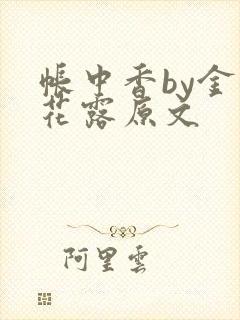 帳中香by金
花露原文
阿里雲